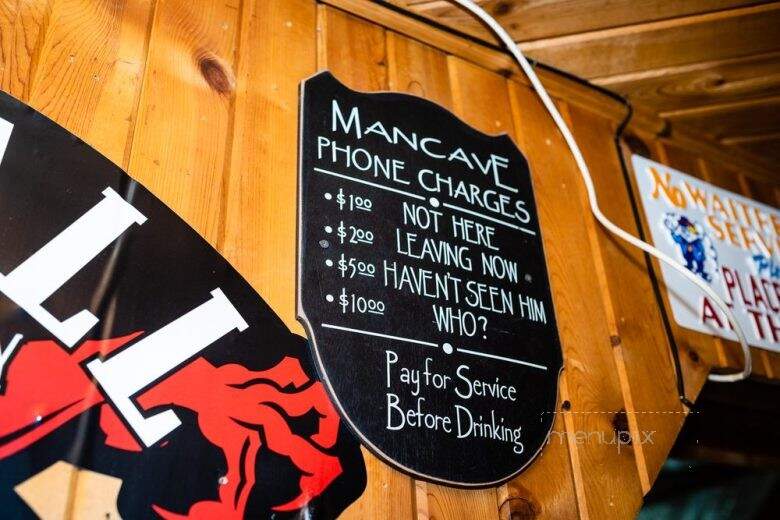 ALL
MANCAVE
PHONE CHARGES
• $1.00 NOT HERE
• $2.00 LEAVING NOW
• $5.00 HAVEN'T SEEN HIM
• $10.00 WHO?
Pay for Service
Before Drinking
No WAITER
SERV
PLAC
AT T
menupix